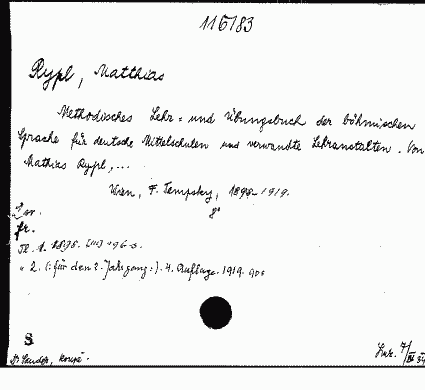 116/83
Rypl, Matthias
Methodisches Lehr- und Übungsbuch der böhmischen
Sprache für deutsche Mittelschulen und verwandte Lehranstalten. Von
Mathias Rypl,...
Wien, F. Tempsky, 1898-1919.
8°
fr.
Tl. 1. 1898. 96 S.
" 2. (:für den 2. Jahrgang:). 4. Auflage. 1919.
S